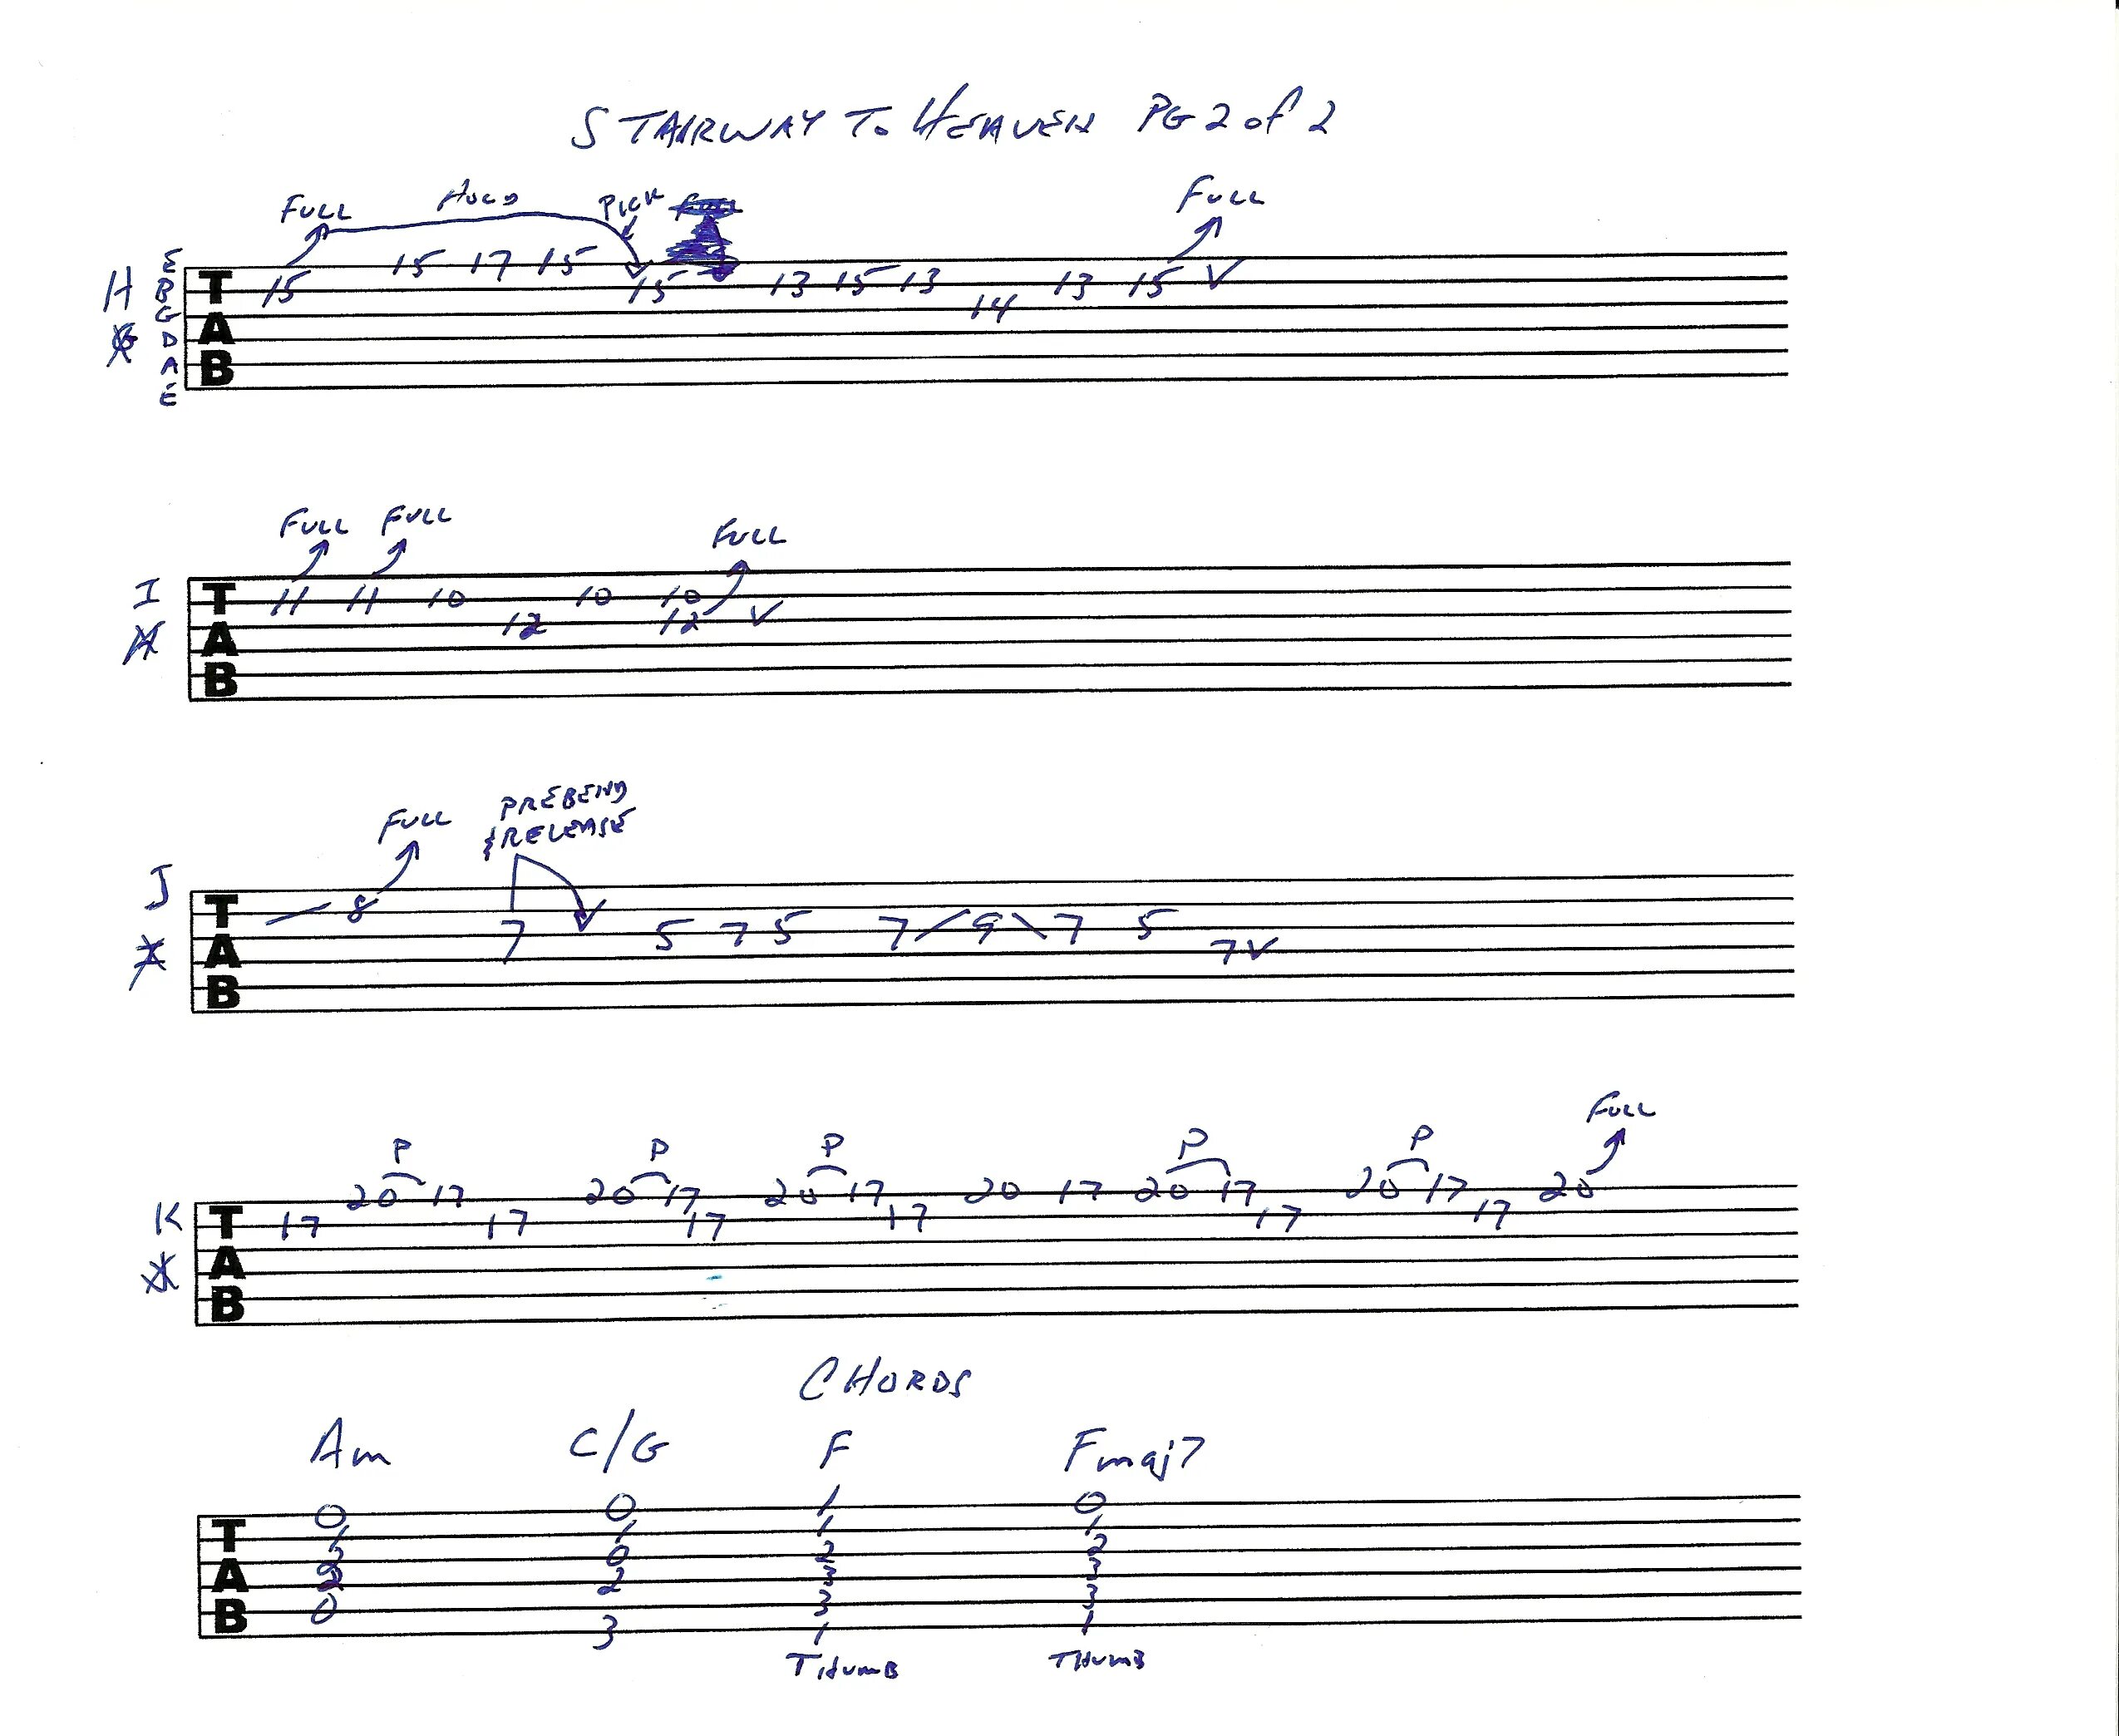 STAIRWAY To HEAVEN PG 2 of 2
FULL HOLD PICK FULL
E 15 17 15
H B T 15 15 13 15 13 13 15 V
G 14
D A
A B
E
FULL FULL FULL
I T 11 11 10 10 10
12 12 V
A
B
FULL PREBEND
& RELEASE
J T 8
7 5 7 5 7 / 9 \ 7 5
A 7 V
B
FULL
P P P P P
20 17 20 17 20 17 20 17 20 17 20 17 20
K T 17 17 17 17 17 17
A
B
CHORDS
Am C/G F Fmaj7
0 0 1 0
T 1 1 1 1
2 0 2 2
A 2 2 3 3
B 0 3 3
3 1 1
THUMB THUMB